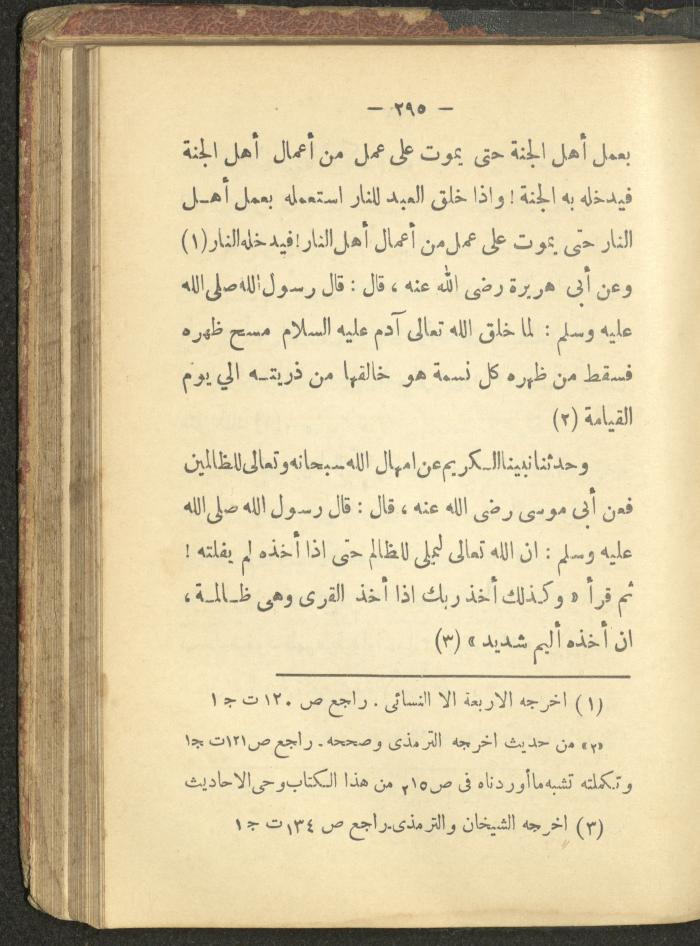 — ٢٩٥ —
بعمل أهل الجنة حتى يموت على عمل من أعمال أهل الجنة
فيدخله به الجنة ! واذا خلق العبد للنار استعمله بعمل أهـل
النار حتى يموت على عمل من أعمال أهل النار ! فيدخله النار (١)
وعن أبى هريرة رضى الله عنه ، قال : قال رسول الله صلى الله
عليه وسلم : لما خلق الله تعالى آدم عليه السلام مسح ظهره
فسقط من ظهره كل نسمة هو خالقها من ذريتـه الي يوم
القيامة (٢)
وحدثنا نبينا الـكريم عن امهال الله سبحانه وتعالى للظالمين
فعن أبى موسى رضى الله عنه ، قال : قال رسول الله صلى الله
عليه وسلم : ان الله تعالى ليملى للظالم حتى اذا أخذه لم يفلته !
ثم قرأ « وكذلك أخذ ربك اذا أخذ القرى وهى ظـالمـة ،
ان أخذه أليم شديد » (٣)
(١) اخرجه الاربعة الا النسائى . راجع ص ١٢٠ ت ج ١
«٢» من حديث اخرجه الترمذى وصححه . راجع ص ١٢١ ت ج ١
وتـكملته تشبه ما أوردناه فى ص ٢١٥ من هذا الـكتاب وحى الاحاديث
(٣) اخرجه الشيخان والترمذى . راجع ص ١٣٤ ت ج ١